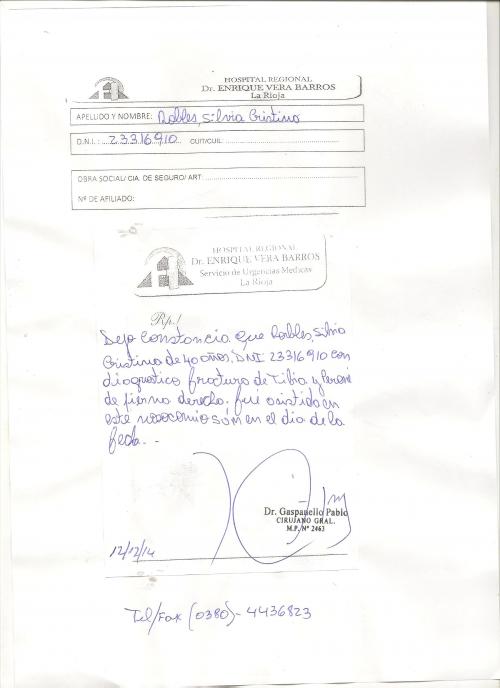 HOSPITAL REGIONAL
Dr. ENRIQUE VERA BARROS
La Rioja
APELLIDO Y NOMBRE: Robles, Silvia Cristina
D.N.I.: 23316910 CUIT/CUIL:
OBRA SOCIAL/ CIA. DE SEGURO/ ART:
Nº DE AFILIADO:
HOSPITAL REGIONAL
Dr. ENRIQUE VERA BARROS
Servicio de Urgencias Medicas
La Rioja
Rp./
Dejo constancia que Robles, Silvia
Cristina de 40 años, DNI 23316910 con
diagnostico fractura de Tibia y Peroné
de pierna derecha. fué asistida en
este nosocomio en el dia de la
fecha.-
Dr. Gaspanello Pablo
CIRUJANO GRAL.
M.P. Nº 2463
12/12/14
Tel/Fax (0380)- 4436823